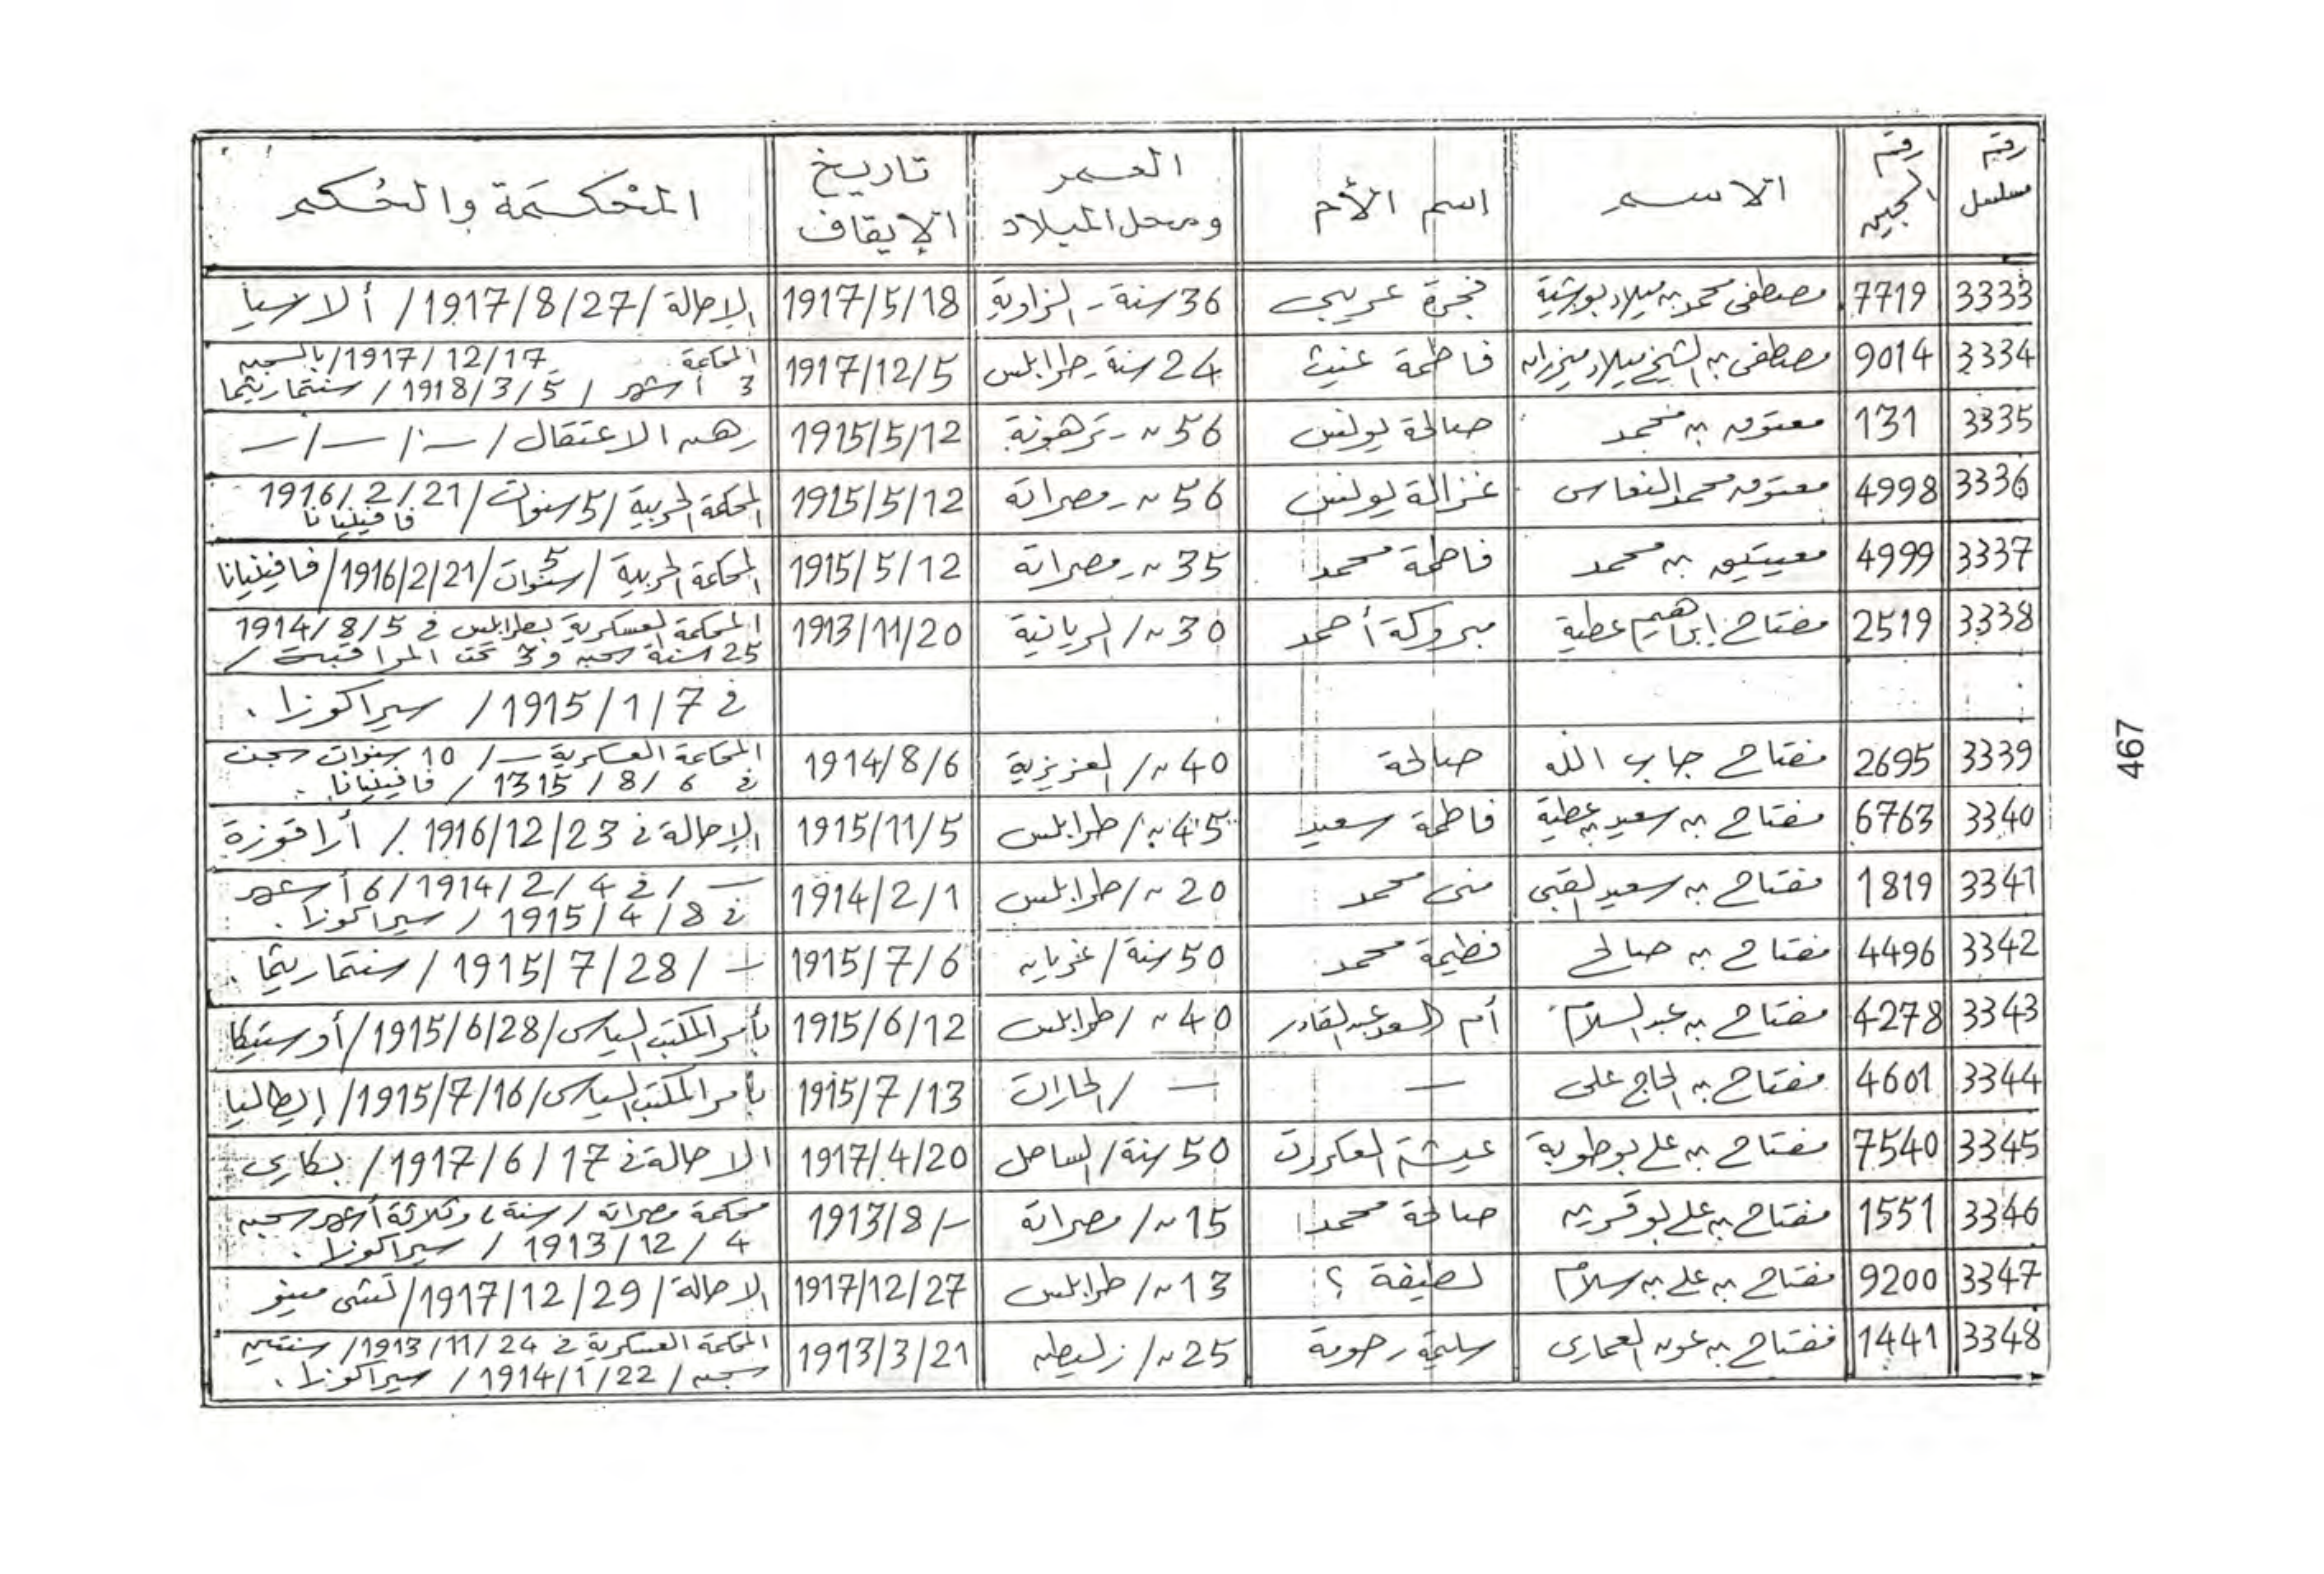 رقم مسلسل | رقم السجين | الاسم | اسم الأم | العمر ومحل الميلاد | تاريخ الإيقاف | المحكمة والحكم
3333 | 7719 | مصطفى محمد بن ميلاد | فجرة عريبي | 36 سنة - الزاوية | 1917/5/18 | الإحالة / 1917/8/27 / ألاسيا
3334 | 9014 | مصطفى بن الشيخ ميلاد ميزران | فاطمة غيث | 24 سنة - طرابلس | 1917/12/5 | المحكمة 1917/12/17 / بالسجن
3 أشهر / 1918/3/5 / سنتماريثما
3335 | 131 | معتوق بن محمد | صالحة يونس | 56 " - ترهونة | 1915/5/12 | رهن الاعتقال / - / - / -
3336 | 4998 | معتوق محمد النعاس | غزالة يونس | 56 " - مصراتة | 1915/5/12 | المحكمة الحربية / 5 سنوات / 1916/2/21
فافينيانا
3337 | 4999 | معيتيق بن محمد | فاطمة محمد | 35 " - مصراتة | 1915/5/12 | المحكمة الحربية / 5 سنوات / 1916/2/21 / فافينيانا
3338 | 2519 | مفتاح إبراهيم عطية | مبروكة أحمد | 30 " / الريانية | 1913/11/20 | المحكمة العسكرية بطرابلس في 1914/8/5
25 سنة سجن و 3 تحت المراقبة /
في 1915/1/7 / سيراكوزا .
3339 | 2695 | مفتاح جاب الله | صالحة | 40 " / العزيزية | 1914/8/6 | المحكمة العسكرية - / 10 سنوات سجن
في 1315/8/6 / فافينيانا .
3340 | 6763 | مفتاح بن سعيد بن عطية | فاطمة سعيد | 45 " / طرابلس | 1915/11/5 | الإحالة في 1916/12/23 / أراقوزة
3341 | 1819 | مفتاح بن سعيد القبي | منى محمد | 20 " / طرابلس | 1914/2/1 | - / في 1914/2/4 / 6 أشهر
في 1915/4/8 / سيراكوزا .
3342 | 4496 | مفتاح بن صالح | فطيمة محمد | 50 سنة / غريان | 1915/7/6 | - / 1915/7/28 / سنتماريثما .
3343 | 4278 | مفتاح بن عبد السلام | أم السعد عبد القادر | 40 " / طرابلس | 1915/6/12 | بأمر المكتب السياسى / 1915/6/28 / أوستيكا
3344 | 4601 | مفتاح بن الحاج على | - | - / الحارات | 1915/7/13 | بأمر المكتب السياسى / 1915/7/16 / إيطاليا
3345 | 7540 | مفتاح بن علي بوطوبة | عيشة | 50 سنة / الساحل | 1917/4/20 | الاحالة في 1917/6/17 /
3346 | 1551 | مفتاح بن علي بوقرين | صالحة محمد | 15 " / مصراتة | 1913/8/- | محكمة مصراتة / سنة، وثلاثة أشهر سجن
1913/12/4 / سيراكوزا .
3347 | 9200 | مفتاح بن علي بن سلام | لطيفة ؟ | 13 " / طرابلس | 1917/12/27 | الاحالة / 1917/12/29 /
3348 | 1441 | مفتاح بن عون العمارى | سليمة رحومة | 25 " / زليطن | 1913/3/21 | المحكمة العسكرية في 1913/11/24 / سنتين
سجن / 1914/1/22 / سيراكوزا .
467